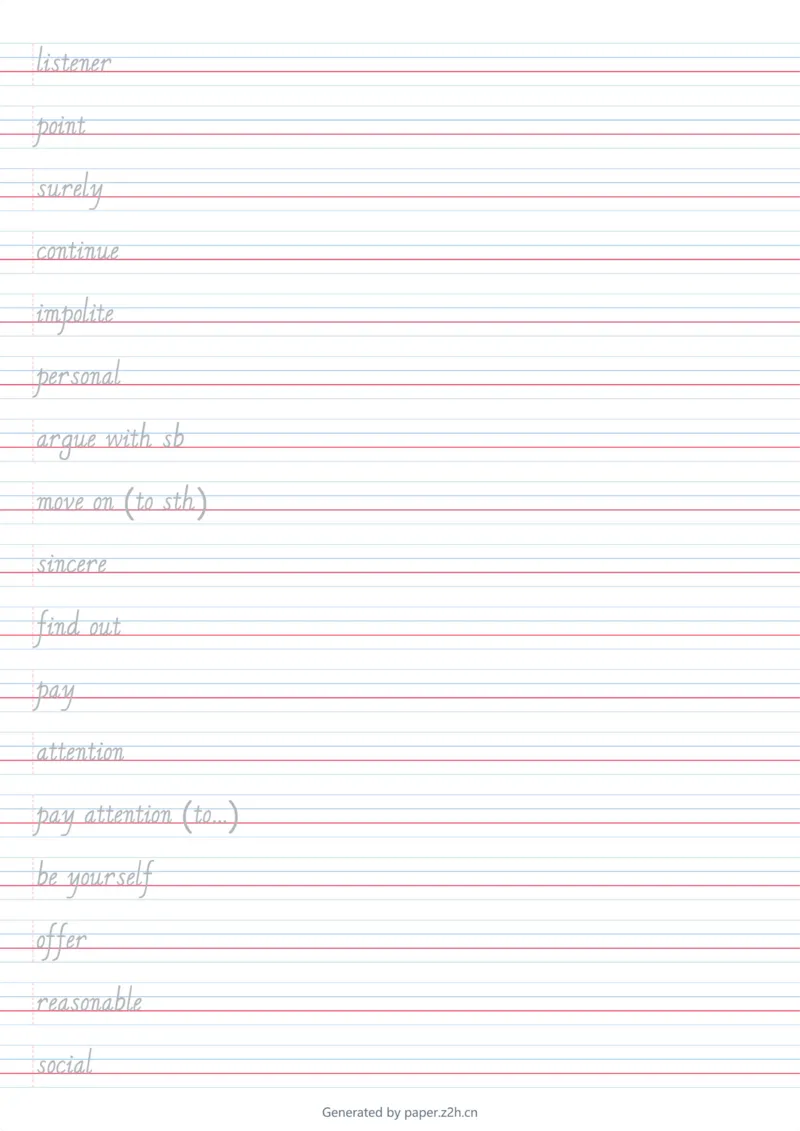 listener
point
surely
continue
impolite
personal
argue with sb
move on (to sth)
sincere
find out
pay
attention
pay attention (to...)
be yourself
offer
reasonable
social
Generated by paper.z2h.cn